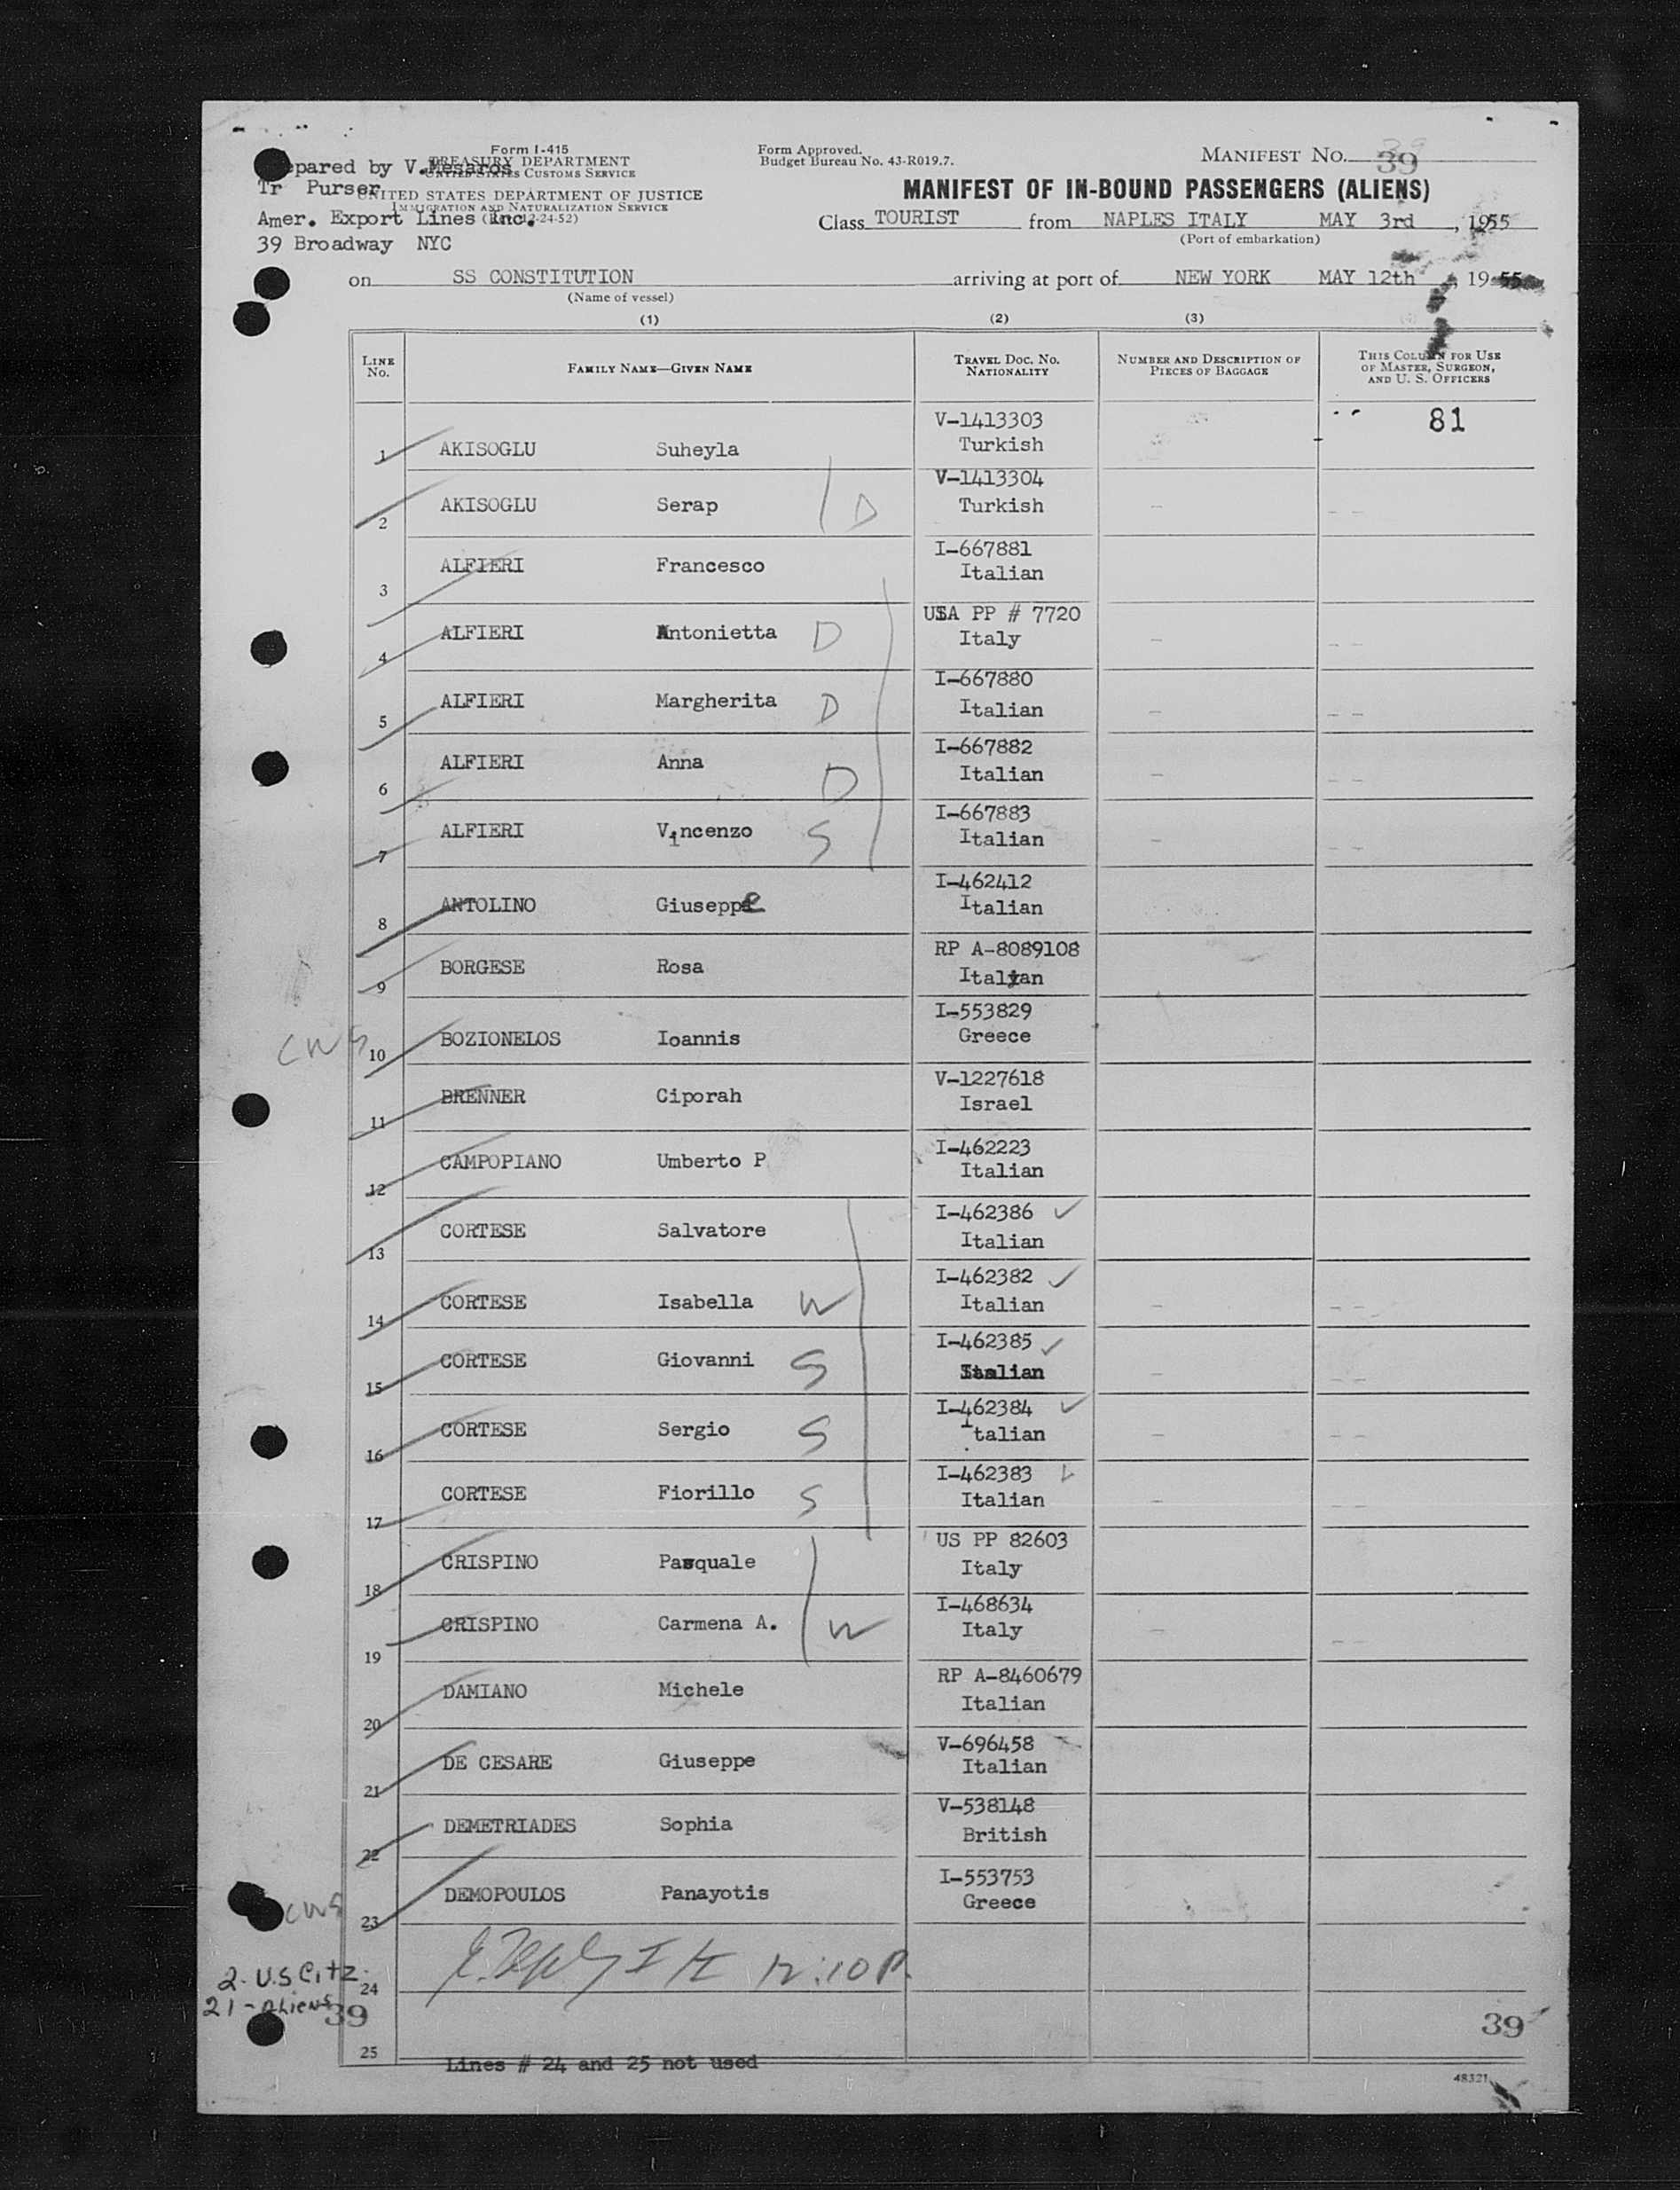 Form I-415
TREASURY DEPARTMENT
United States Customs Service
UNITED STATES DEPARTMENT OF JUSTICE
Immigration and Naturalization Service
Prepared by V. Mesaros
Tr Purser
Amer. Export Lines Inc.
39 Broadway NYC
Form Approved.
Budget Bureau No. 43-R019.7.
MANIFEST NO. 39
MANIFEST OF IN-BOUND PASSENGERS (ALIENS)
Class TOURIST from NAPLES ITALY MAY 3rd, 1955
(Port of embarkation)
on SS CONSTITUTION arriving at port of NEW YORK MAY 12th, 1955
(Name of vessel)
(1) (2) (3)
LINE NO. FAMILY NAME—GIVEN NAME TRAVEL DOC. NO. NATIONALITY NUMBER AND DESCRIPTION OF PIECES OF BAGGAGE THIS COLUMN FOR USE OF MASTER, SURGEON, AND U. S. OFFICERS
81
1 AKISOGLU Suheyla V-1413303 Turkish
2 AKISOGLU Serap D V-1413304 Turkish
3 ALFIERI Francesco I-667881 Italian
4 ALFIERI Antonietta D USA PP # 7720 Italy
5 ALFIERI Margherita D I-667880 Italian
6 ALFIERI Anna D I-667882 Italian
7 ALFIERI Vincenzo S I-667883 Italian
8 ANTOLINO Giuseppe I-462412 Italian
9 BORGESE Rosa RP A-8089108 Italian
CWS 10 BOZIONELOS Ioannis I-553829 Greece
11 BRENNER Ciporah V-1227618 Israel
12 CAMPOPIANO Umberto P I-462223 Italian
13 CORTESE Salvatore I-462386 ✓ Italian
14 CORTESE Isabella W I-462382 ✓ Italian
15 CORTESE Giovanni S I-462385 ✓ Italian
16 CORTESE Sergio S I-462384 ✓ Italian
17 CORTESE Fiorillo S I-462383 ✓ Italian
18 CRISPINO Pasquale US PP 82603 Italy
19 CRISPINO Carmena A. W I-468634 Italy
20 DAMIANO Michele RP A-8460679 Italian
21 DE CESARE Giuseppe V-696458 Italian
22 DEMETRIADES Sophia V-538148 British
CWS 23 DEMOPOULOS Panayotis I-553753 Greece
2-U.S Citz. 24 12:10 P.
21-Aliens 39 39
25 Lines # 24 and 25 not used
48321